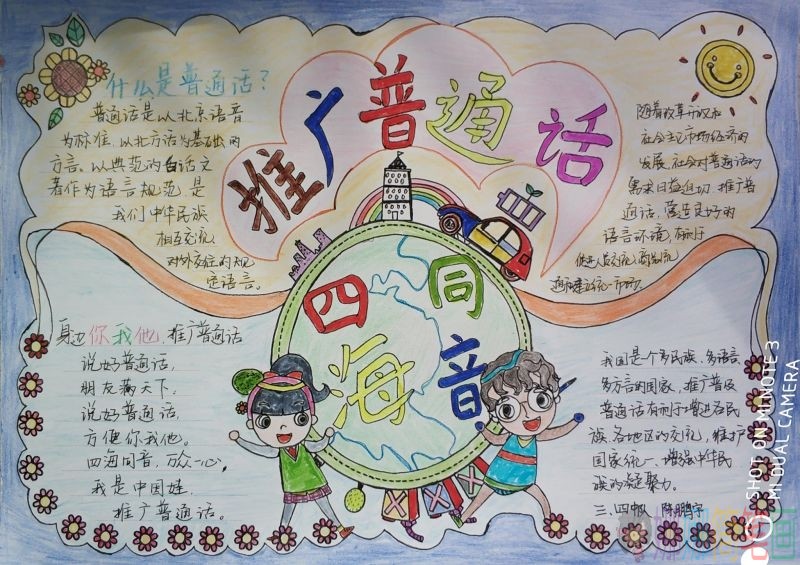 推广普通话
四海同音
什么是普通话？
普通话是以北京语音
为标准，以北方话为基础的
方言。以典范的白话文
著作为语言规范，是
我们中华民族
相互交流
对外交往的规
定语言。
随着改革开放和
社会主义市场经济的
发展，社会对普通话的
需求日益迫切，推广普
通话，营造良好的
语言环境，有利于
促进人员交流，商品流
通和建立统一市场。
身边你我他，推广普通话
说好普通话，
朋友满天下。
说好普通话，
方便你我他。
四海同音，万众一心，
我是中国娃，
推广普通话。
我国是个多民族、多语言、
多方言的国家，推广普及
普通话有利于增进各民
族、各地区的交流，维护
国家统一、增强中华民
族的凝聚力。
三、四班 陈鹏宇
SHOT ON MI NOTE 3
MI DUAL CAMERA